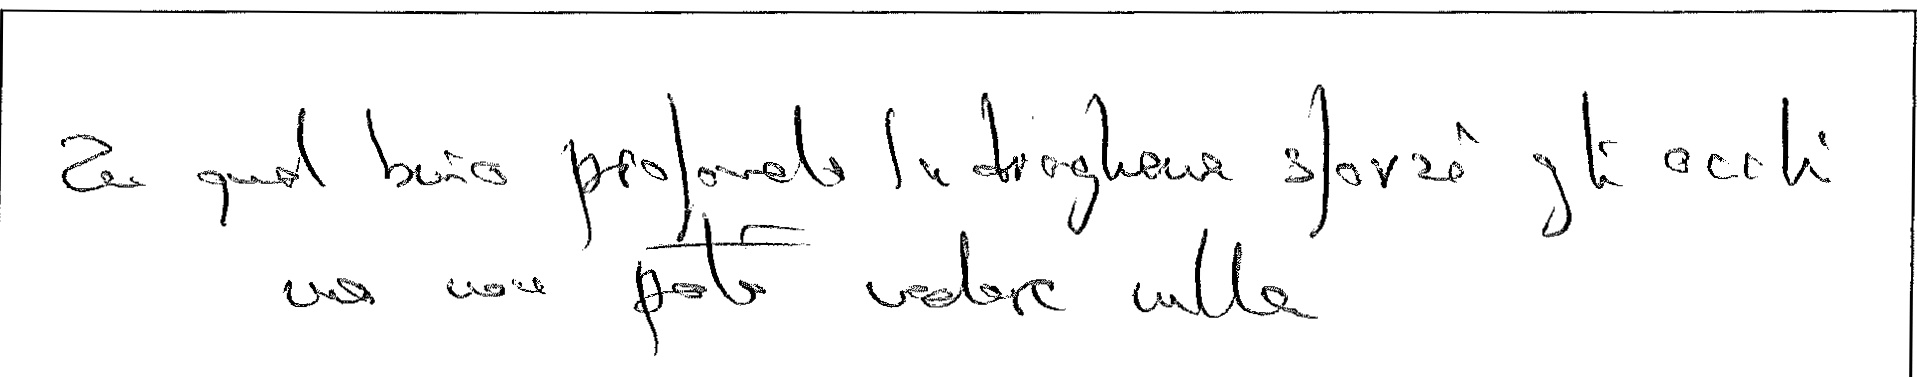 In quel buio profondo Indraghana sforzò gli occhi
ma non poté vedere nulla